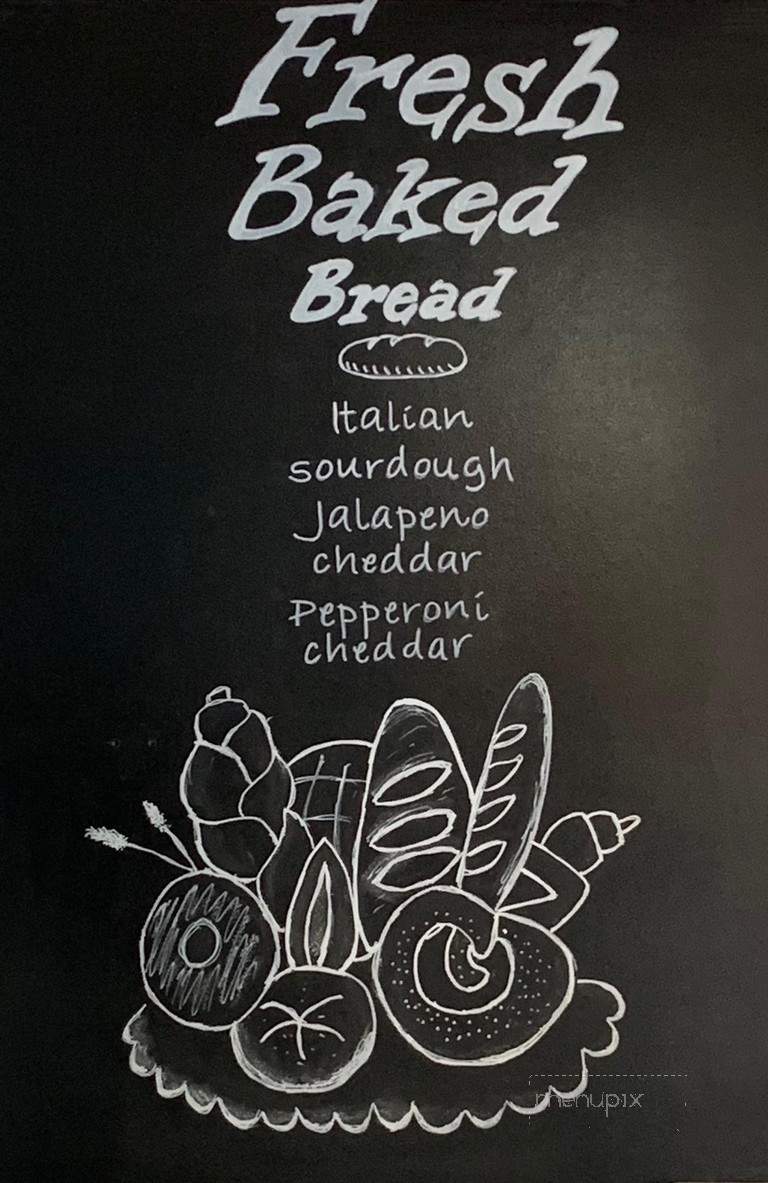 Fresh
Baked
Bread
Italian
sourdough
Jalapeno
cheddar
Pepperoni
cheddar
menupix